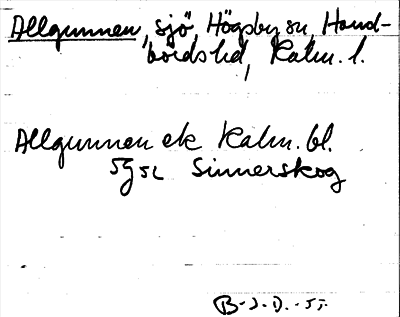 Allgunnen, sjö, Högsby sn, Hand-
bördshd, Kalm. l.
Allgunnen ek Kalm. bl.
5g SL Sinnerskog
B-J.D.-55.